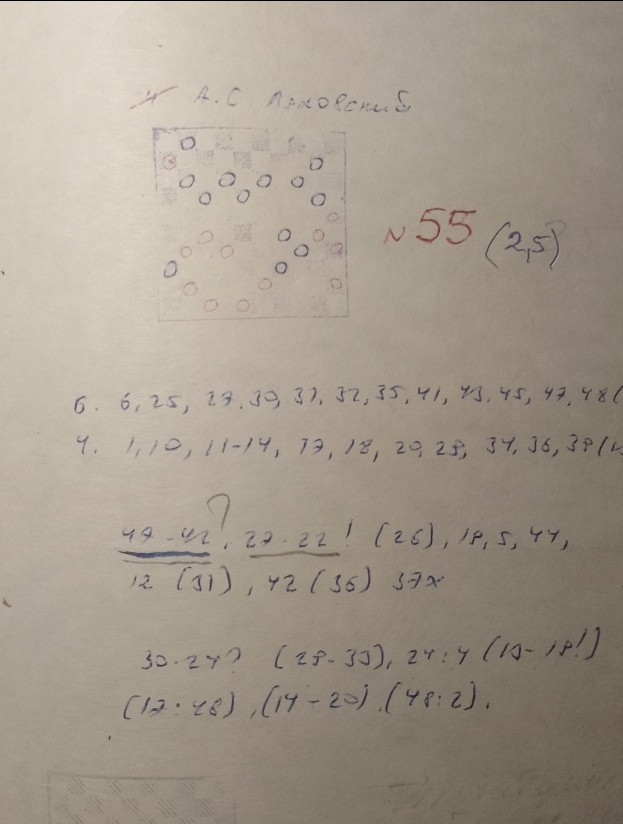 А.С. Ляховский
N 55 (2,5)
б. 6, 25, 27, 30, 31, 32, 35, 41, 43, 45, 47, 48 (
ч. 1, 10, 11-14, 17, 18, 20, 29, 34, 36, 39
47-42?, 27-22! (26), 18, 5, 44,
12 (31), 42 (36) 37x
30-24? (29-33), 24:4 (13-18!)
(17:48), (14-20), (48:2).